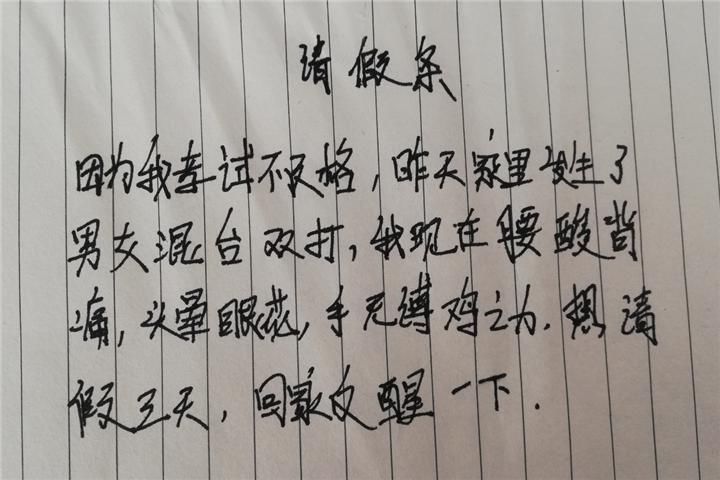 请假条
因为我考试不及格,昨天家里发生了
男女混合双打,我现在腰酸背
痛,头晕眼花,手无缚鸡之力.想请
假三天,回家反醒一下.